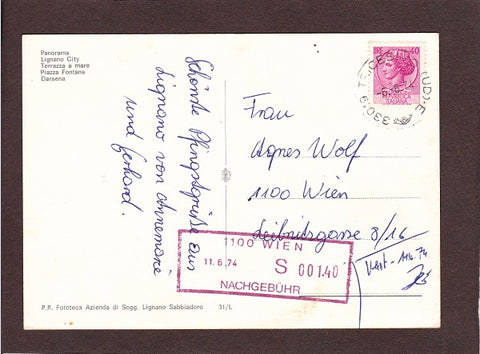 Panorama
Lignano City
Terrazza a mare
Piazza Fontana
Darsena
Schönste Pfingstgrüße aus
Lignano von Annemarie
und Gerhard.
40
Frau
Agnes Wolf
1100 Wien
Leibnizgasse 8/16
1100 WIEN
11.6.74 S 001.40
NACHGEBÜHR
P.R. Fototeca Azienda di Sogg. Lignano Sabbiadoro 31/L